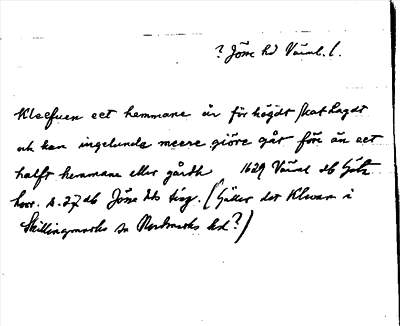 ? Jösse hd Värml. l.
Kleefuen eet hemmane är för högdt skat lagdt
och kan ingelunda meere giöre går före än eet
halft hemmane eller gårdh 1629 Värml db Göta
hovr. s. 27 db Jösse hds ting. (Gäller det Klevan i
Skillingmarks sn Nordmarks hd?)